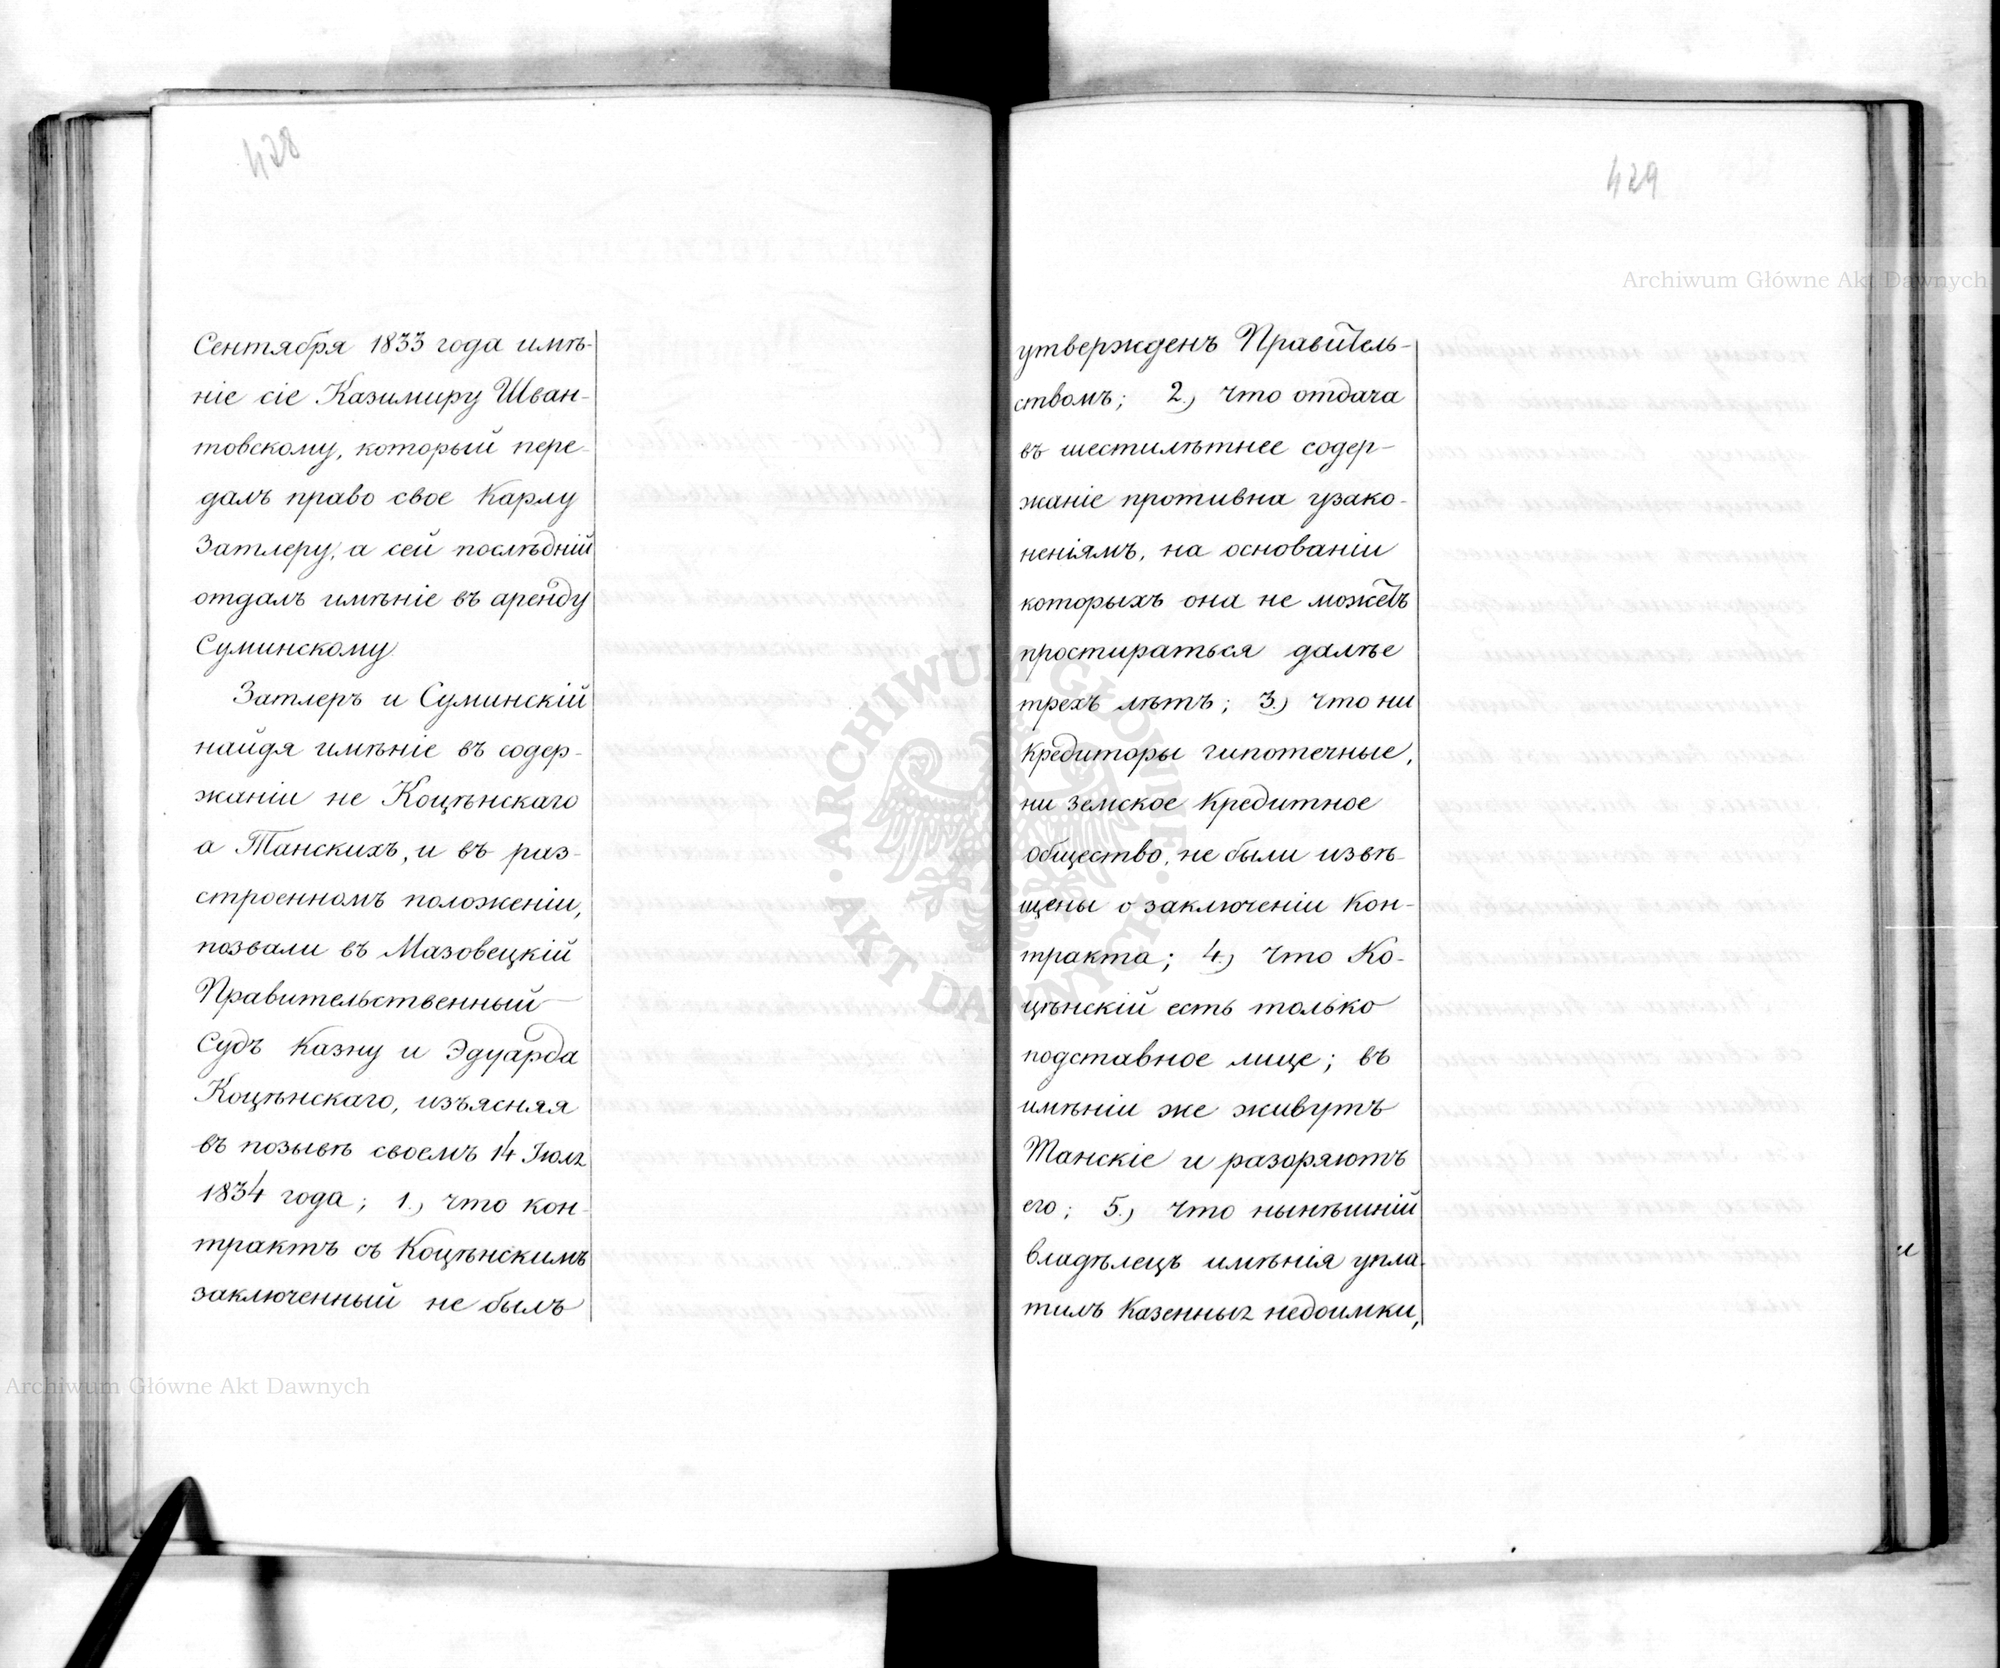 428
Сентября 1833 года имѣ-
ніе сіе Казимиру Шван-
товскому, который пере-
далъ право свое Карлу
Затлеру, а сей послѣдній
отдалъ имѣніе въ аренду
Суминскому.
Затлеръ и Суминскій
найдя имѣніе въ содер-
жаніи не Коцѣнскаго
а Танскихъ, и въ раз-
строенномъ положеніи,
позвали въ Мазовецкій
Правительственный
Судъ Казну и Эдуарда
Коцѣнскаго, изъясняя
въ позывѣ своемъ 14 Іюля
1834 года; 1., что кон-
трактъ съ Коцѣнскимъ
заключенный не былъ
429
утвержденъ Правитель-
ствомъ; 2., что отдача
въ шестилѣтнее содер-
жаніе противна узако-
неніямъ, на основаніи
которыхъ она не можетъ
простираться далѣе
трехъ лѣтъ; 3.) что ни
кредиторы гипотечные,
ни Земское Кредитное
Общество, не были извѣ-
щены о заключеніи кон-
тракта; 4.) что Ко-
цѣнскій есть только
подставное лице; въ
имѣніи же живутъ
Танскіе и разоряютъ
его; 5., что нынѣшній
владѣлецъ имѣнія упла-
тилъ Казенныя недоимки,
и
Archiwum Główne Akt Dawnych
Archiwum Główne Akt Dawnych
ARCHIWUM GŁÓWNE
AKT DAWNYCH